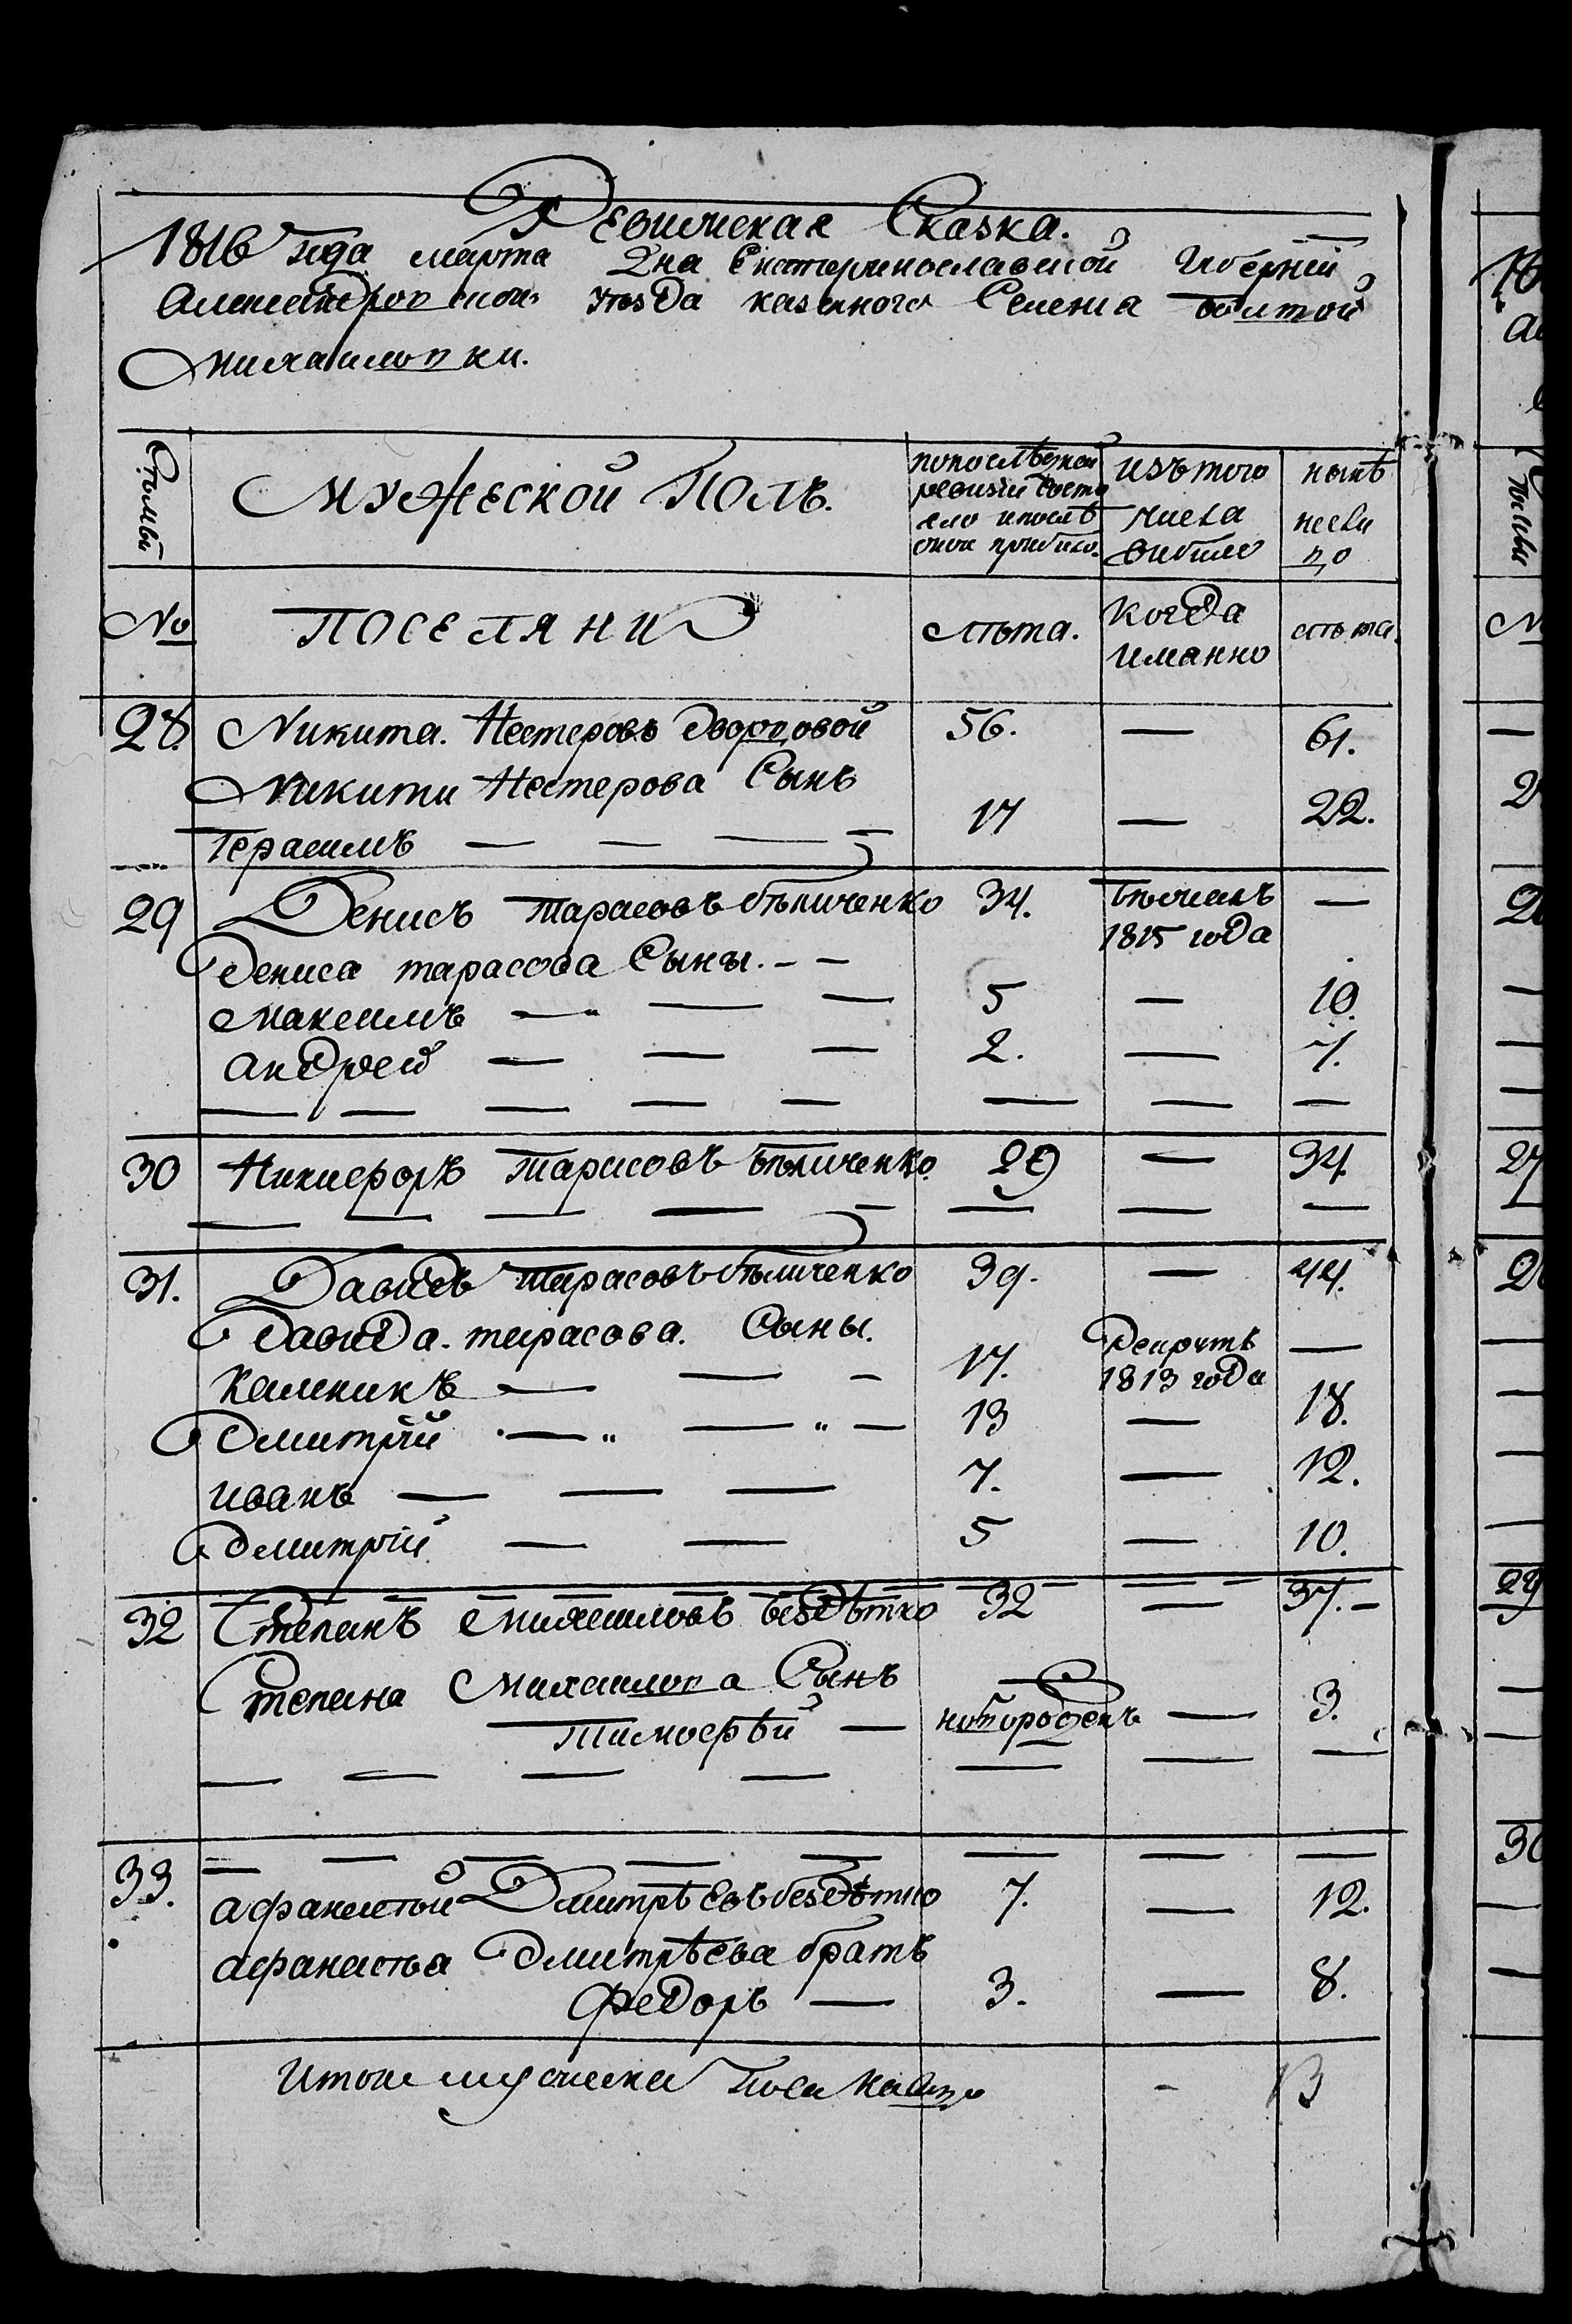 Ревижская Сказка.
1816 года марта Дня Екатеринославской Губерний
Александровской уезда казенного Селения Болтой
Михаиловки.
Фамилии
Мужеской Полъ.
по последней
ревизии состо
яло и после
оной прибыло.
изъ того
числа
выбыло
ныне
на ли
цо
№
ПОСЕЛЯНИ
лѣта.
Когда
иманно
лѣта.
28. Никита Нестеровъ Дворцовой 56. — 61.
Никити Нестерова Сынъ
Герасимъ — — — 17 — 22.
29 Денисъ Тарасовъ Бѣличенко 34. Бѣжалъ —
1815 года
Дениса тарасова Сыны. - -
Максимъ — — — 5 — 10.
андрей — — — 2. — 7.
30 Никифоръ Тарасовъ Бѣличенко. 29 — 34
31. Давидъ Тарасовъ Бѣличенко 39. — 44.
Давида тарасова. Сыны.
Калникъ — — - 17. Рекрутъ —
1813 года
Дмитрий — — — 13 — 18.
иванъ — — — 7. — 12.
Дмитрий — — 5 — 10.
32 Степанъ Михаиловъ безДѣтко 32 — 37. -
Степана Михаилова Сынъ
Тимофѣй — новорожденъ — 3.
33. афанасий Дмитрѣевъ безДѣтко 7. — 12.
афанасьа Дмитрѣева братъ
Федоръ — 3. — 8.
Итого мужеска Пола налицо - 13